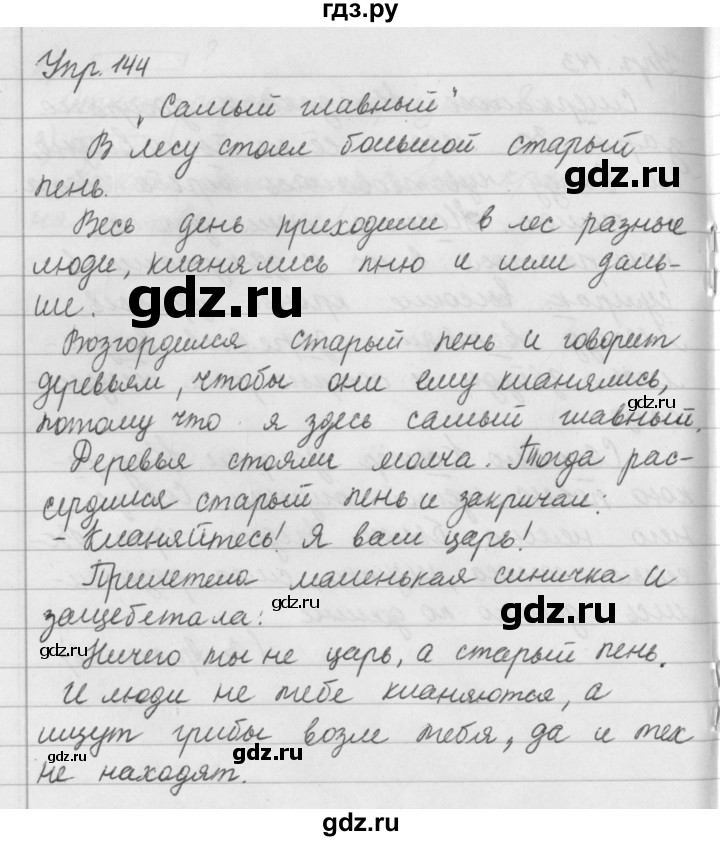 гдз.ру
Упр. 144
„Самый главный"
В лесу стоял большой старый
пень.
Весь день приходили в лес разные
люди, кланялись пню и шли даль-
ше.
gdz.ru
Возгордился старый пень и говорит
деревьям, чтобы они ему кланялись,
потому что я здесь самый главный.
Деревья стояли молча. Тогда рас-
сердился старый пень и закричал:
- Кланяйтесь! Я ваш царь!
Прилетела маленькая синичка и
gdz.ru
gdz.ru
защебетала:
gdz.ru
Ничего ты не царь, а старый пень.
И люди не тебе кланяются, а
ищут грибы возле тебя, да и тех
gdz.ru
gdz.ru
не находят.
gdz.ru